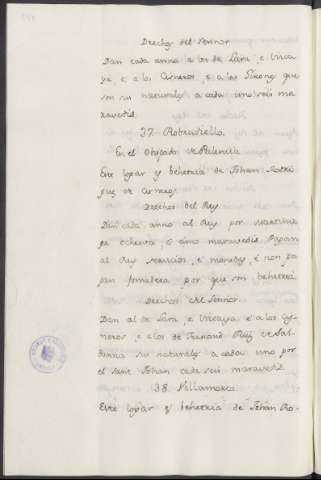 Derechos del Sennor
Dan cada anno a los de Lara, e Vizca
ya, e a los Cisneros, e a los Girones que
son sus naturales a cada uno seis ma
ravedis.
37. Robradiello
En el Obispado de Palencia
Este logar es behetria de Johan Rodri
guez de Cisneros
Derechos del Rey
Dan cada anno al Rey por martinie
ga ochenta e cinco maravedis. Pagan
al Rey servicios, e monedas, e non pa
gan fonsadera por que son behetria.
Derechos del Sennor
Dan al de Lara, e Vizcaya, e a los Cis
neros, e a los de Fernand Ruiz de Sal
danna sus naturales a cada uno por
el Sant Johan cada seis maravedis.
38. Villamorco
Este logar es behetria de Johan Ro-